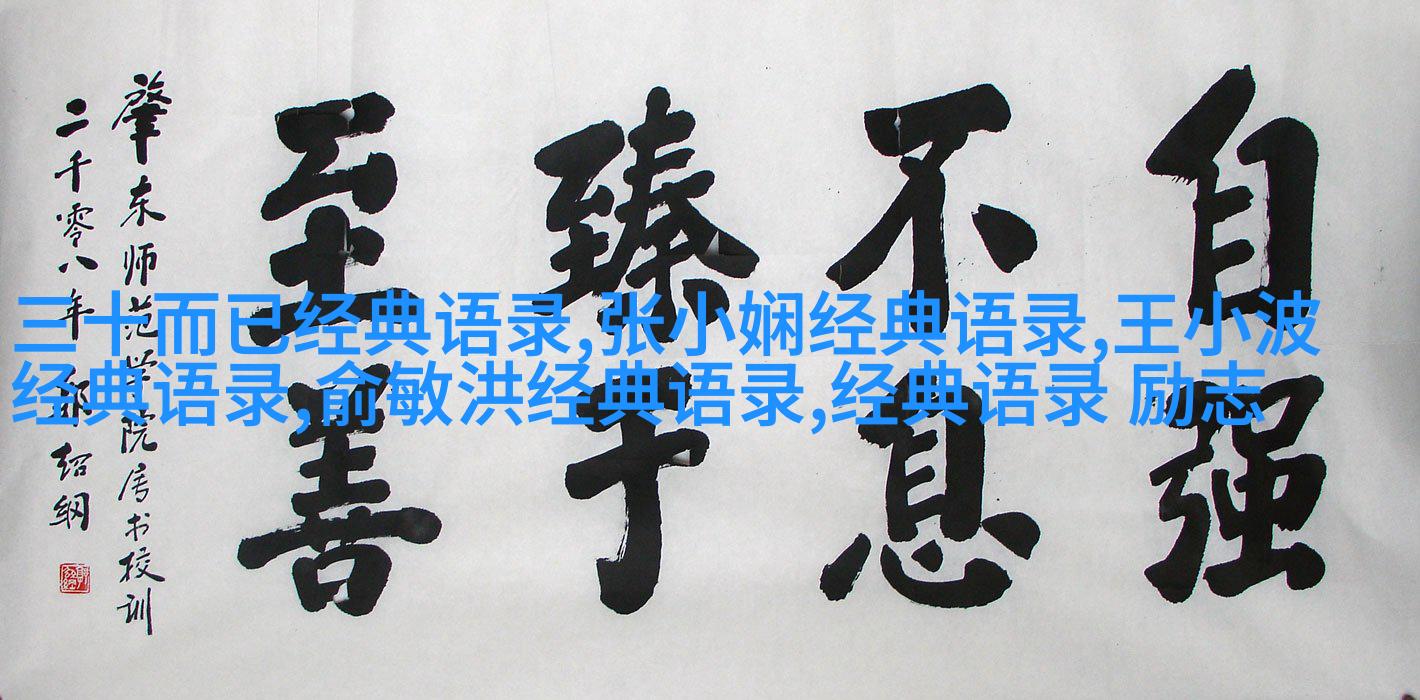 自强
不息
臻于
至善
肇东师范学院属书校训
二千零八年 绍纲
三十而已经典语录,张小娴经典语录,王小波
经典语录,俞敏洪经典语录,经典语录 励志